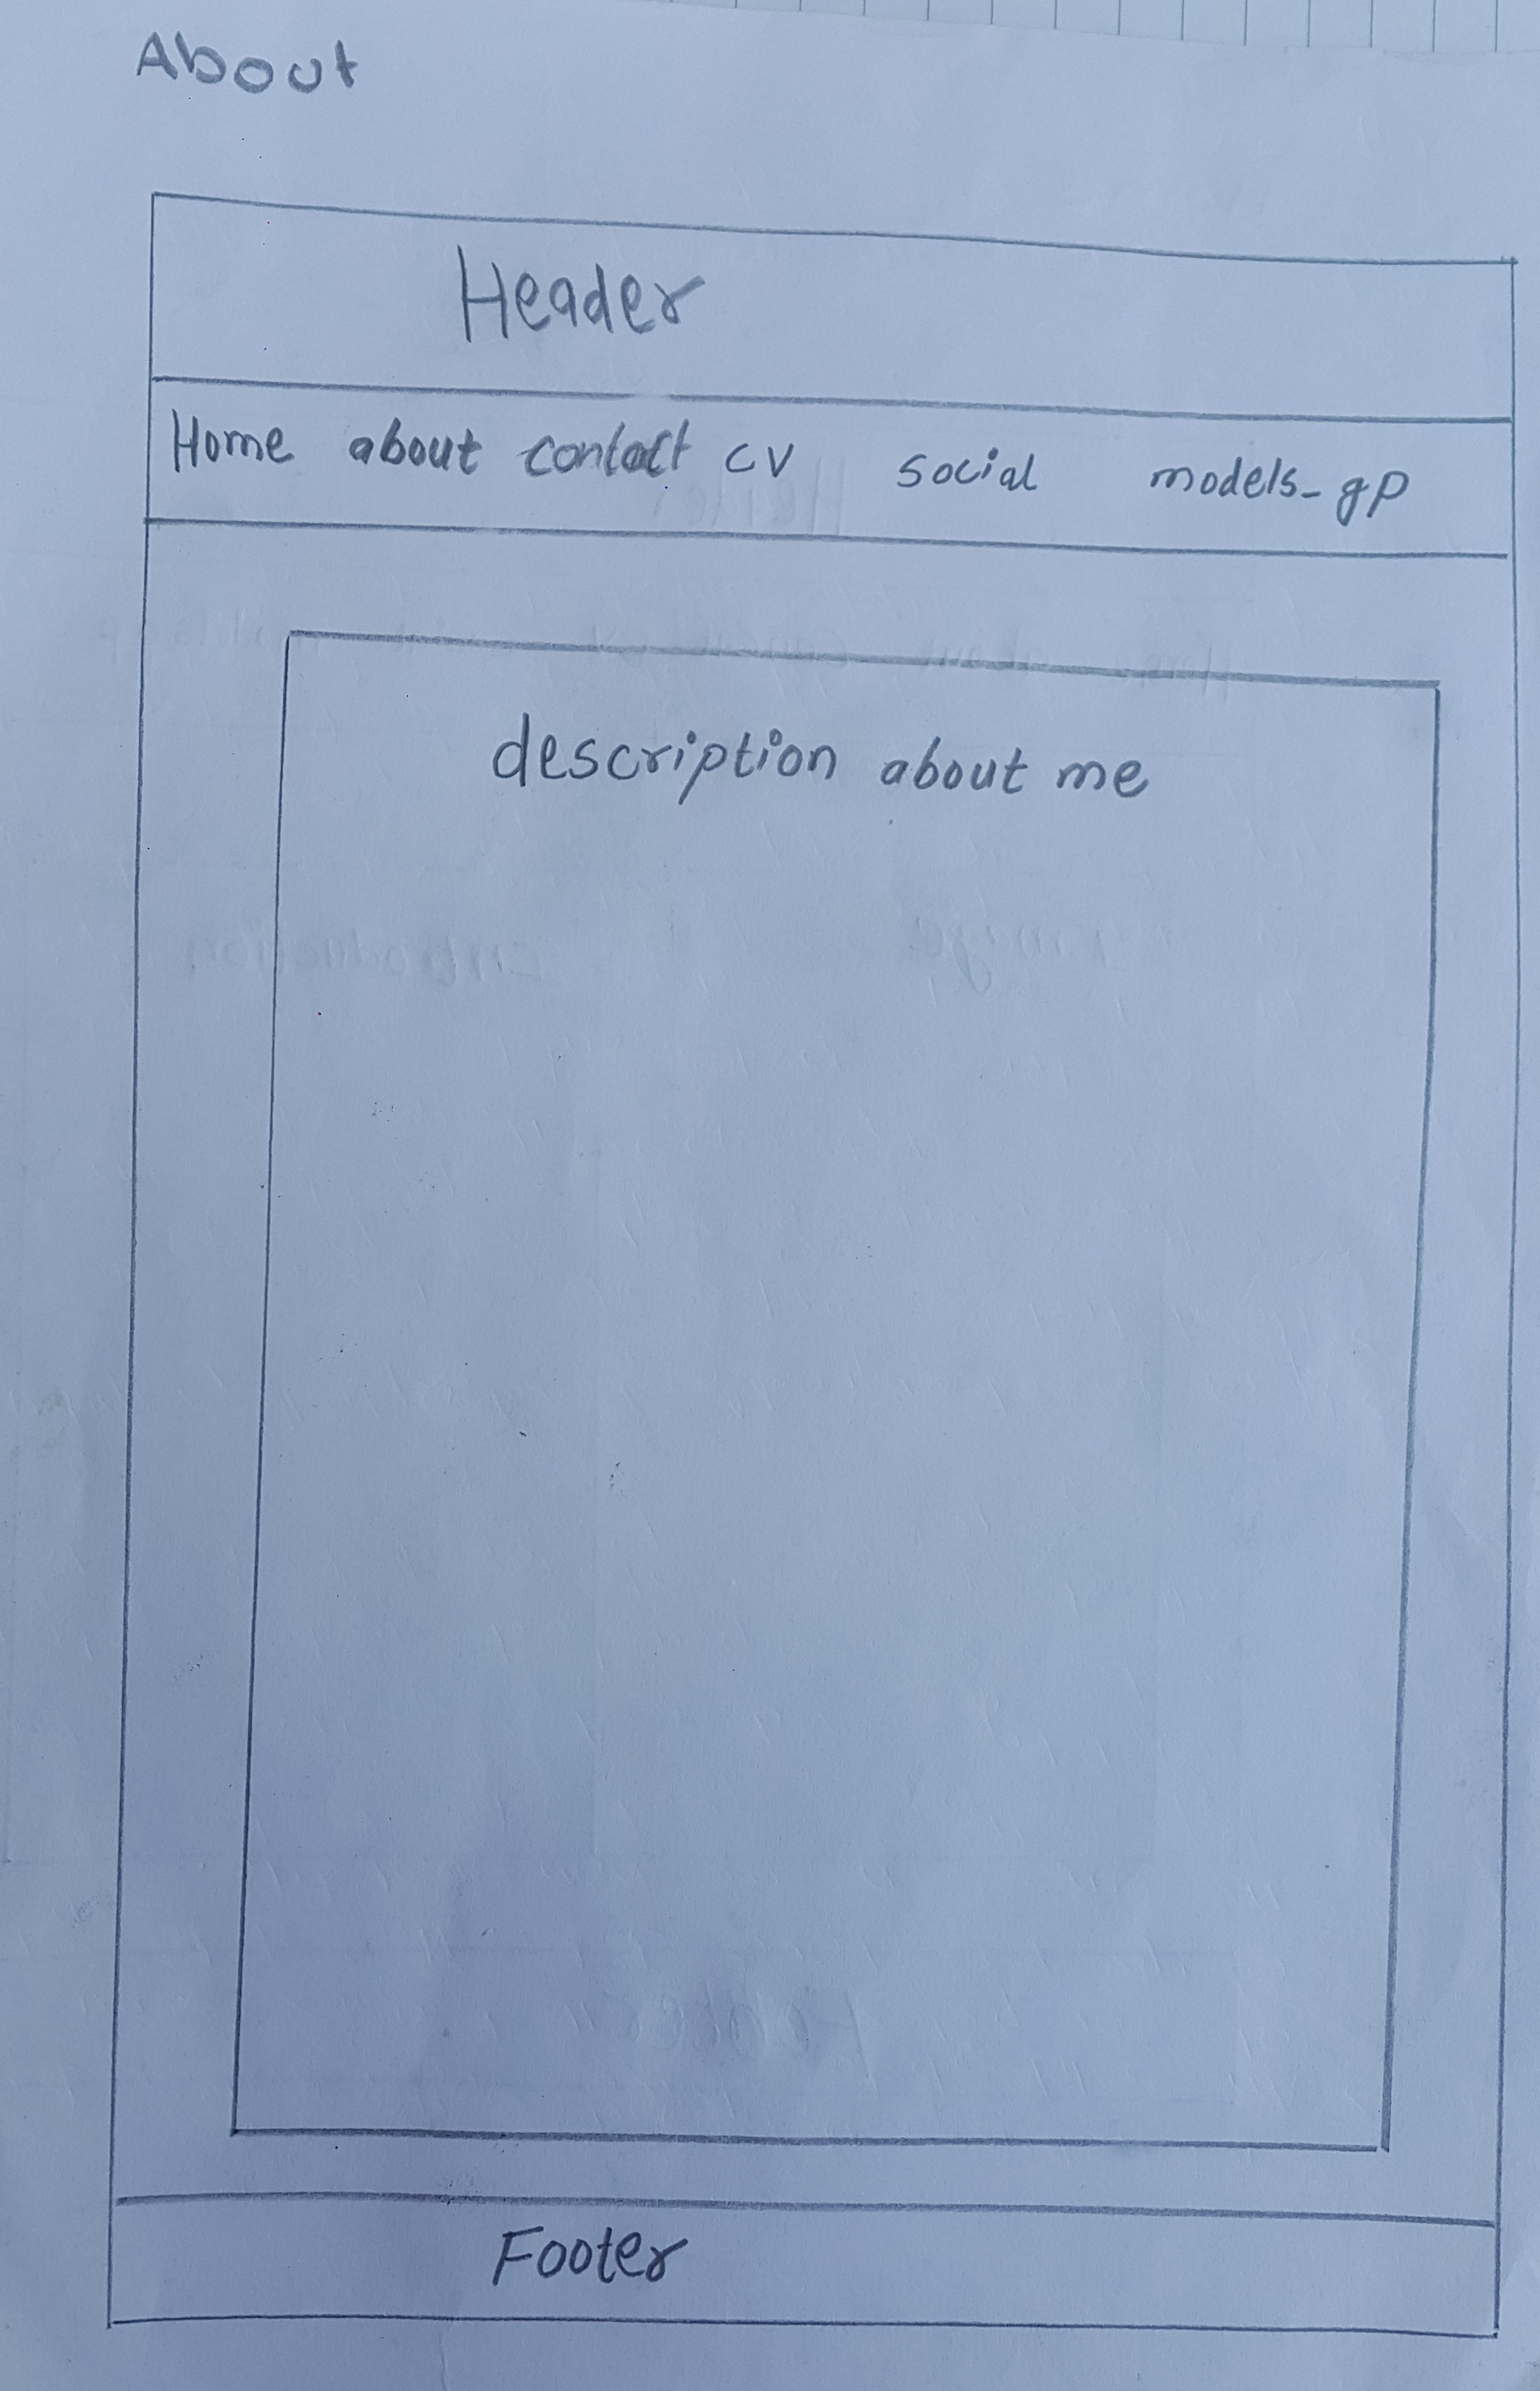 About
Header
Home about contact cv social models-gp
description about me
Footer